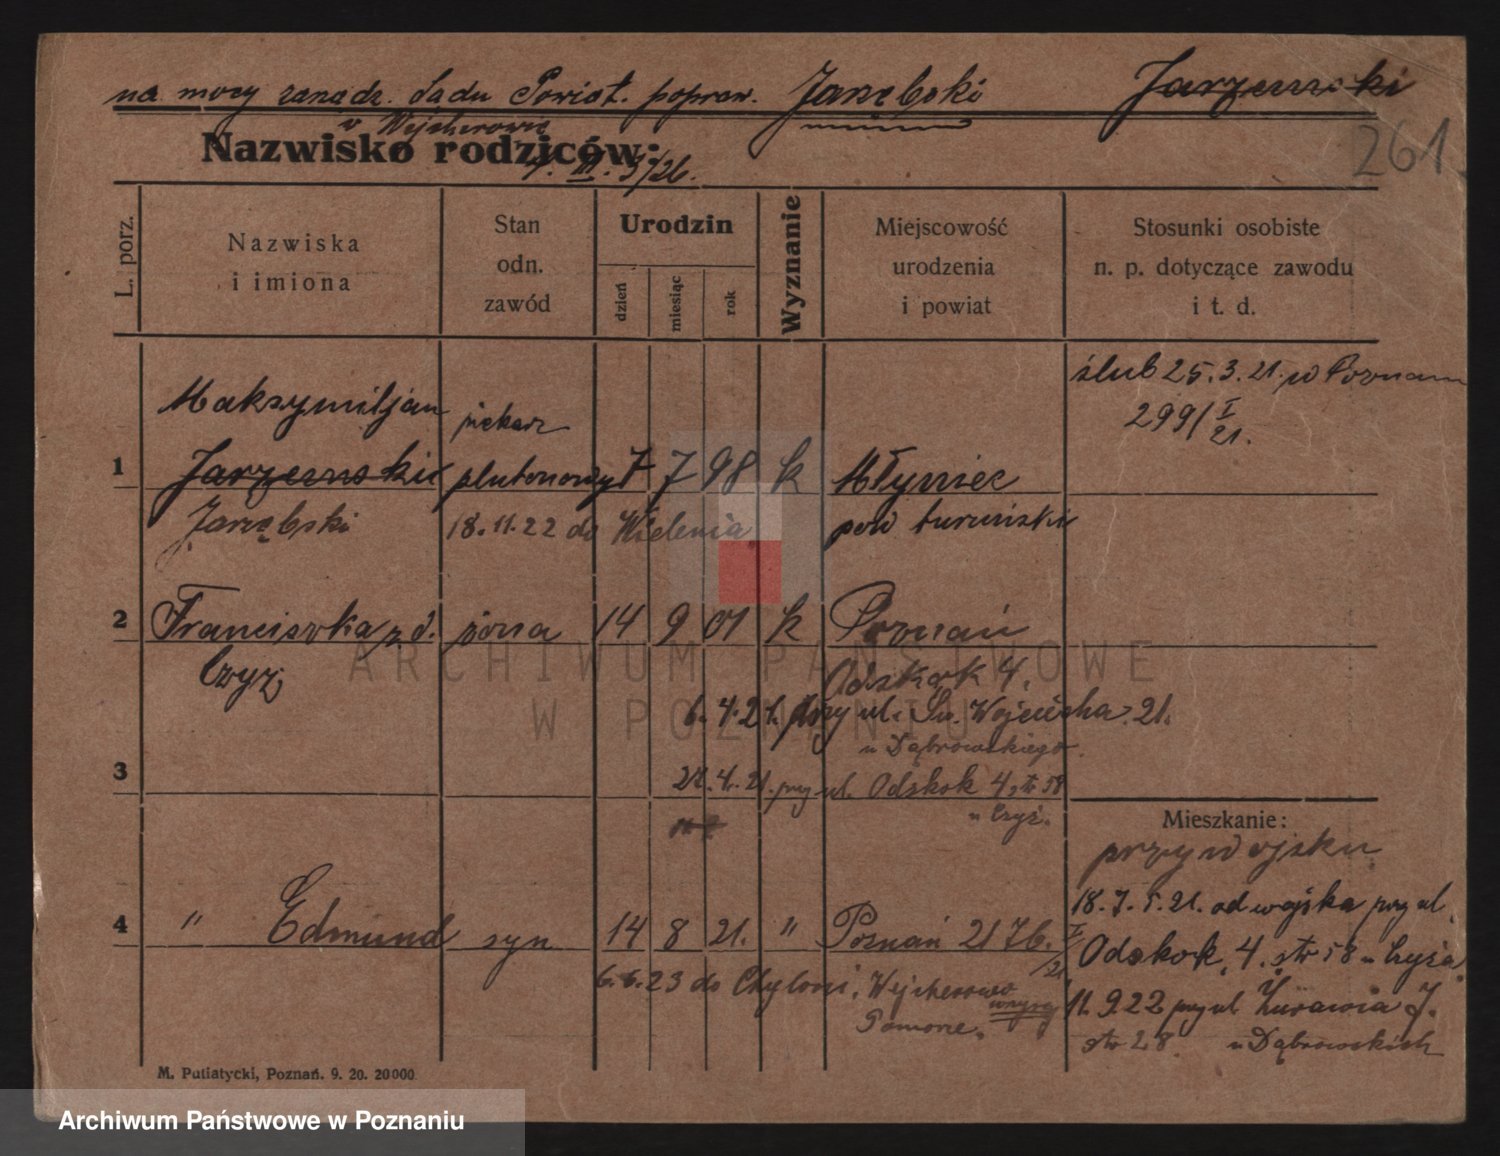 na mocy zarządz. Sądu Powiat. popraw. Jarzębski Jarzemski
w Wejherowie
Nazwisko rodziców:
261
L. porz.
Nazwiska
i imiona
Stan
odn.
zawód
Urodzin
dzień
miesiąc
rok
Wyznanie
Miejscowość
urodzenia
i powiat
Stosunki osobiste
n. p. dotyczące zawodu
i t. d.
ślub 25.3.21. w Poznaniu
299/I
21.
Maksymiljan piekarz
1 Jarzemski plutonowy 7 7 98 k Młyniec
Jarzębski 18.11.22 do Wielenia pow toruński
2 Franciszka z d. żona 14 9 01 k Poznań
Czyż
Odskok 4.
6.4.21. przy ul. Św. Wojciecha 21.
u Dąbrowskiego
3
21.4.21. przy ul. Odskok 4, str 58
u Czyż.
Mieszkanie:
przy wojsku
18.7.21. od wojska przy ul.
4 " Edmund syn 14 8 21. " Poznań 2176. I/21
Odskok 4. str 58 u Czyża.
6.6.23 do Chyloni, Wejherowo
Pomorze.
11.9.22 przy ul. Żurawia 7.
str 28. u Dąbrowskich
M. Putiatycki, Poznań. 9. 20. 20000
ARCHIWUM PAŃSTWOWE
W POZNANIU
Archiwum Państwowe w Poznaniu